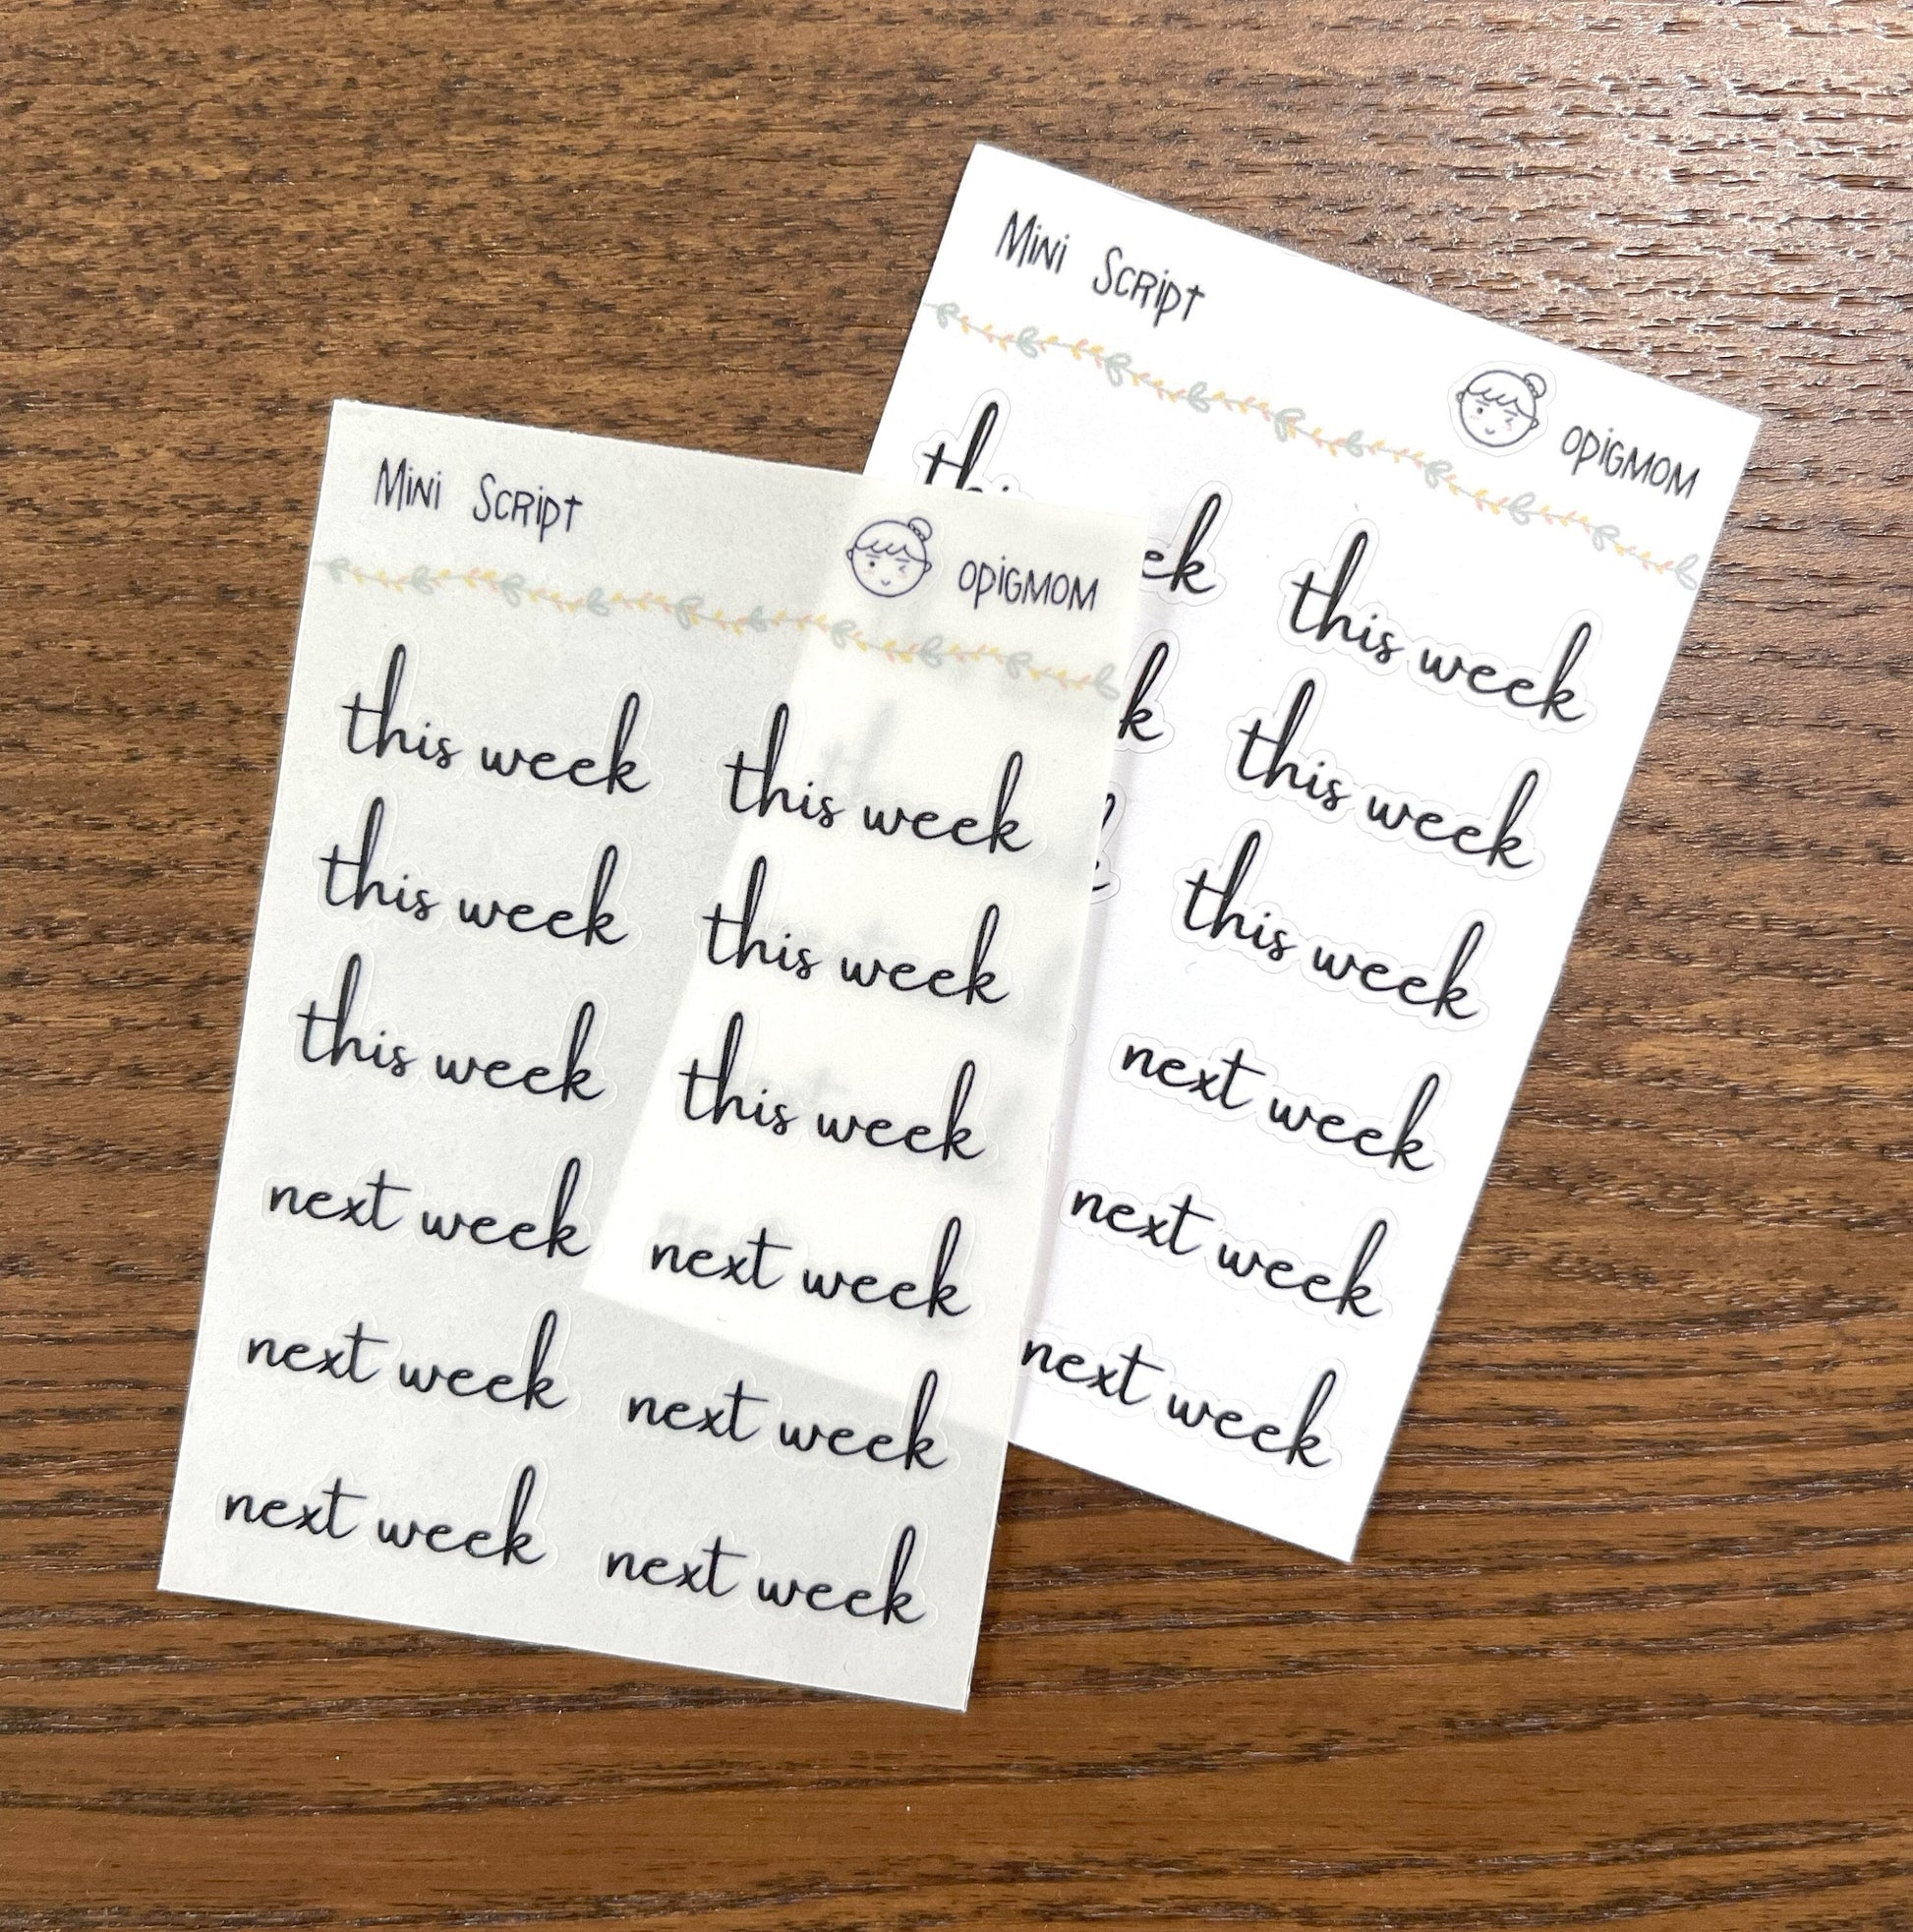 Mini Script
opigmom
this week this week
this week this week
this week this week
next week next week
next week next week
next week next week
Mini Script
opigmom
this week
this week
this week
next week
next week
next week